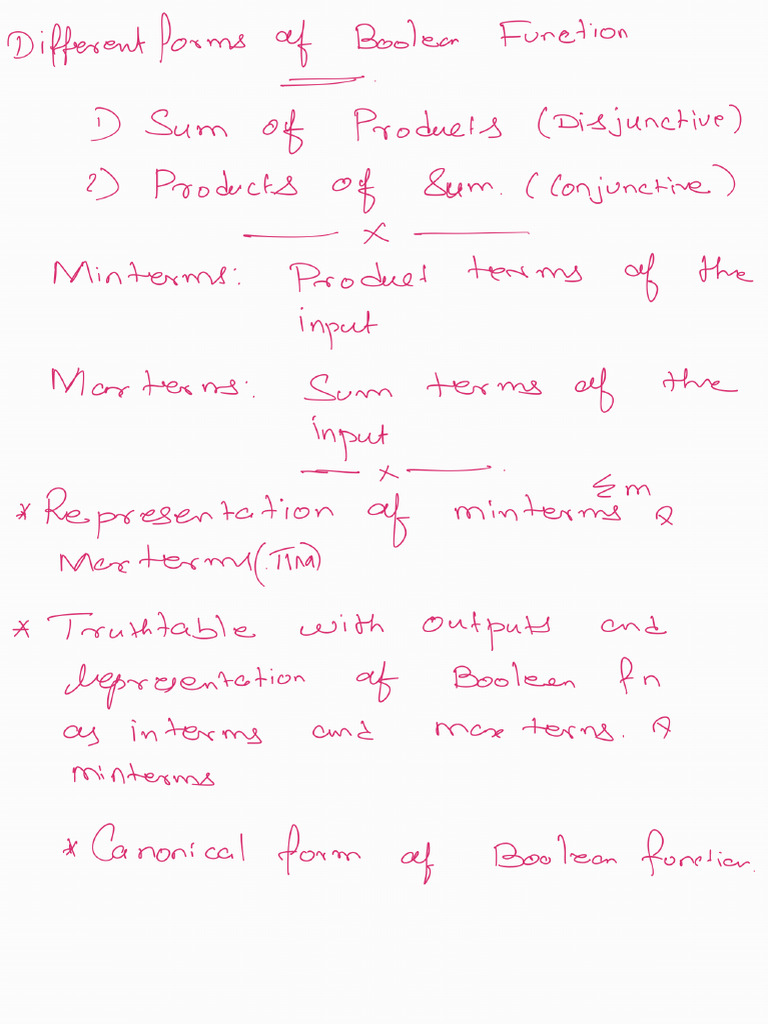 Different forms of Boolean Function
1) Sum of Products (Disjunctive)
2) Products of Sum. (Conjunctive)
x
Minterms: Product terms of the
input
Maxterms: Sum terms of the
input
x
* Representation of minterms Σm &
Maxterms (πM)
* Truthtable with outputs and
representation of Boolean fn
as interms and maxterms. &
minterms
* Canonical form of Boolean function.